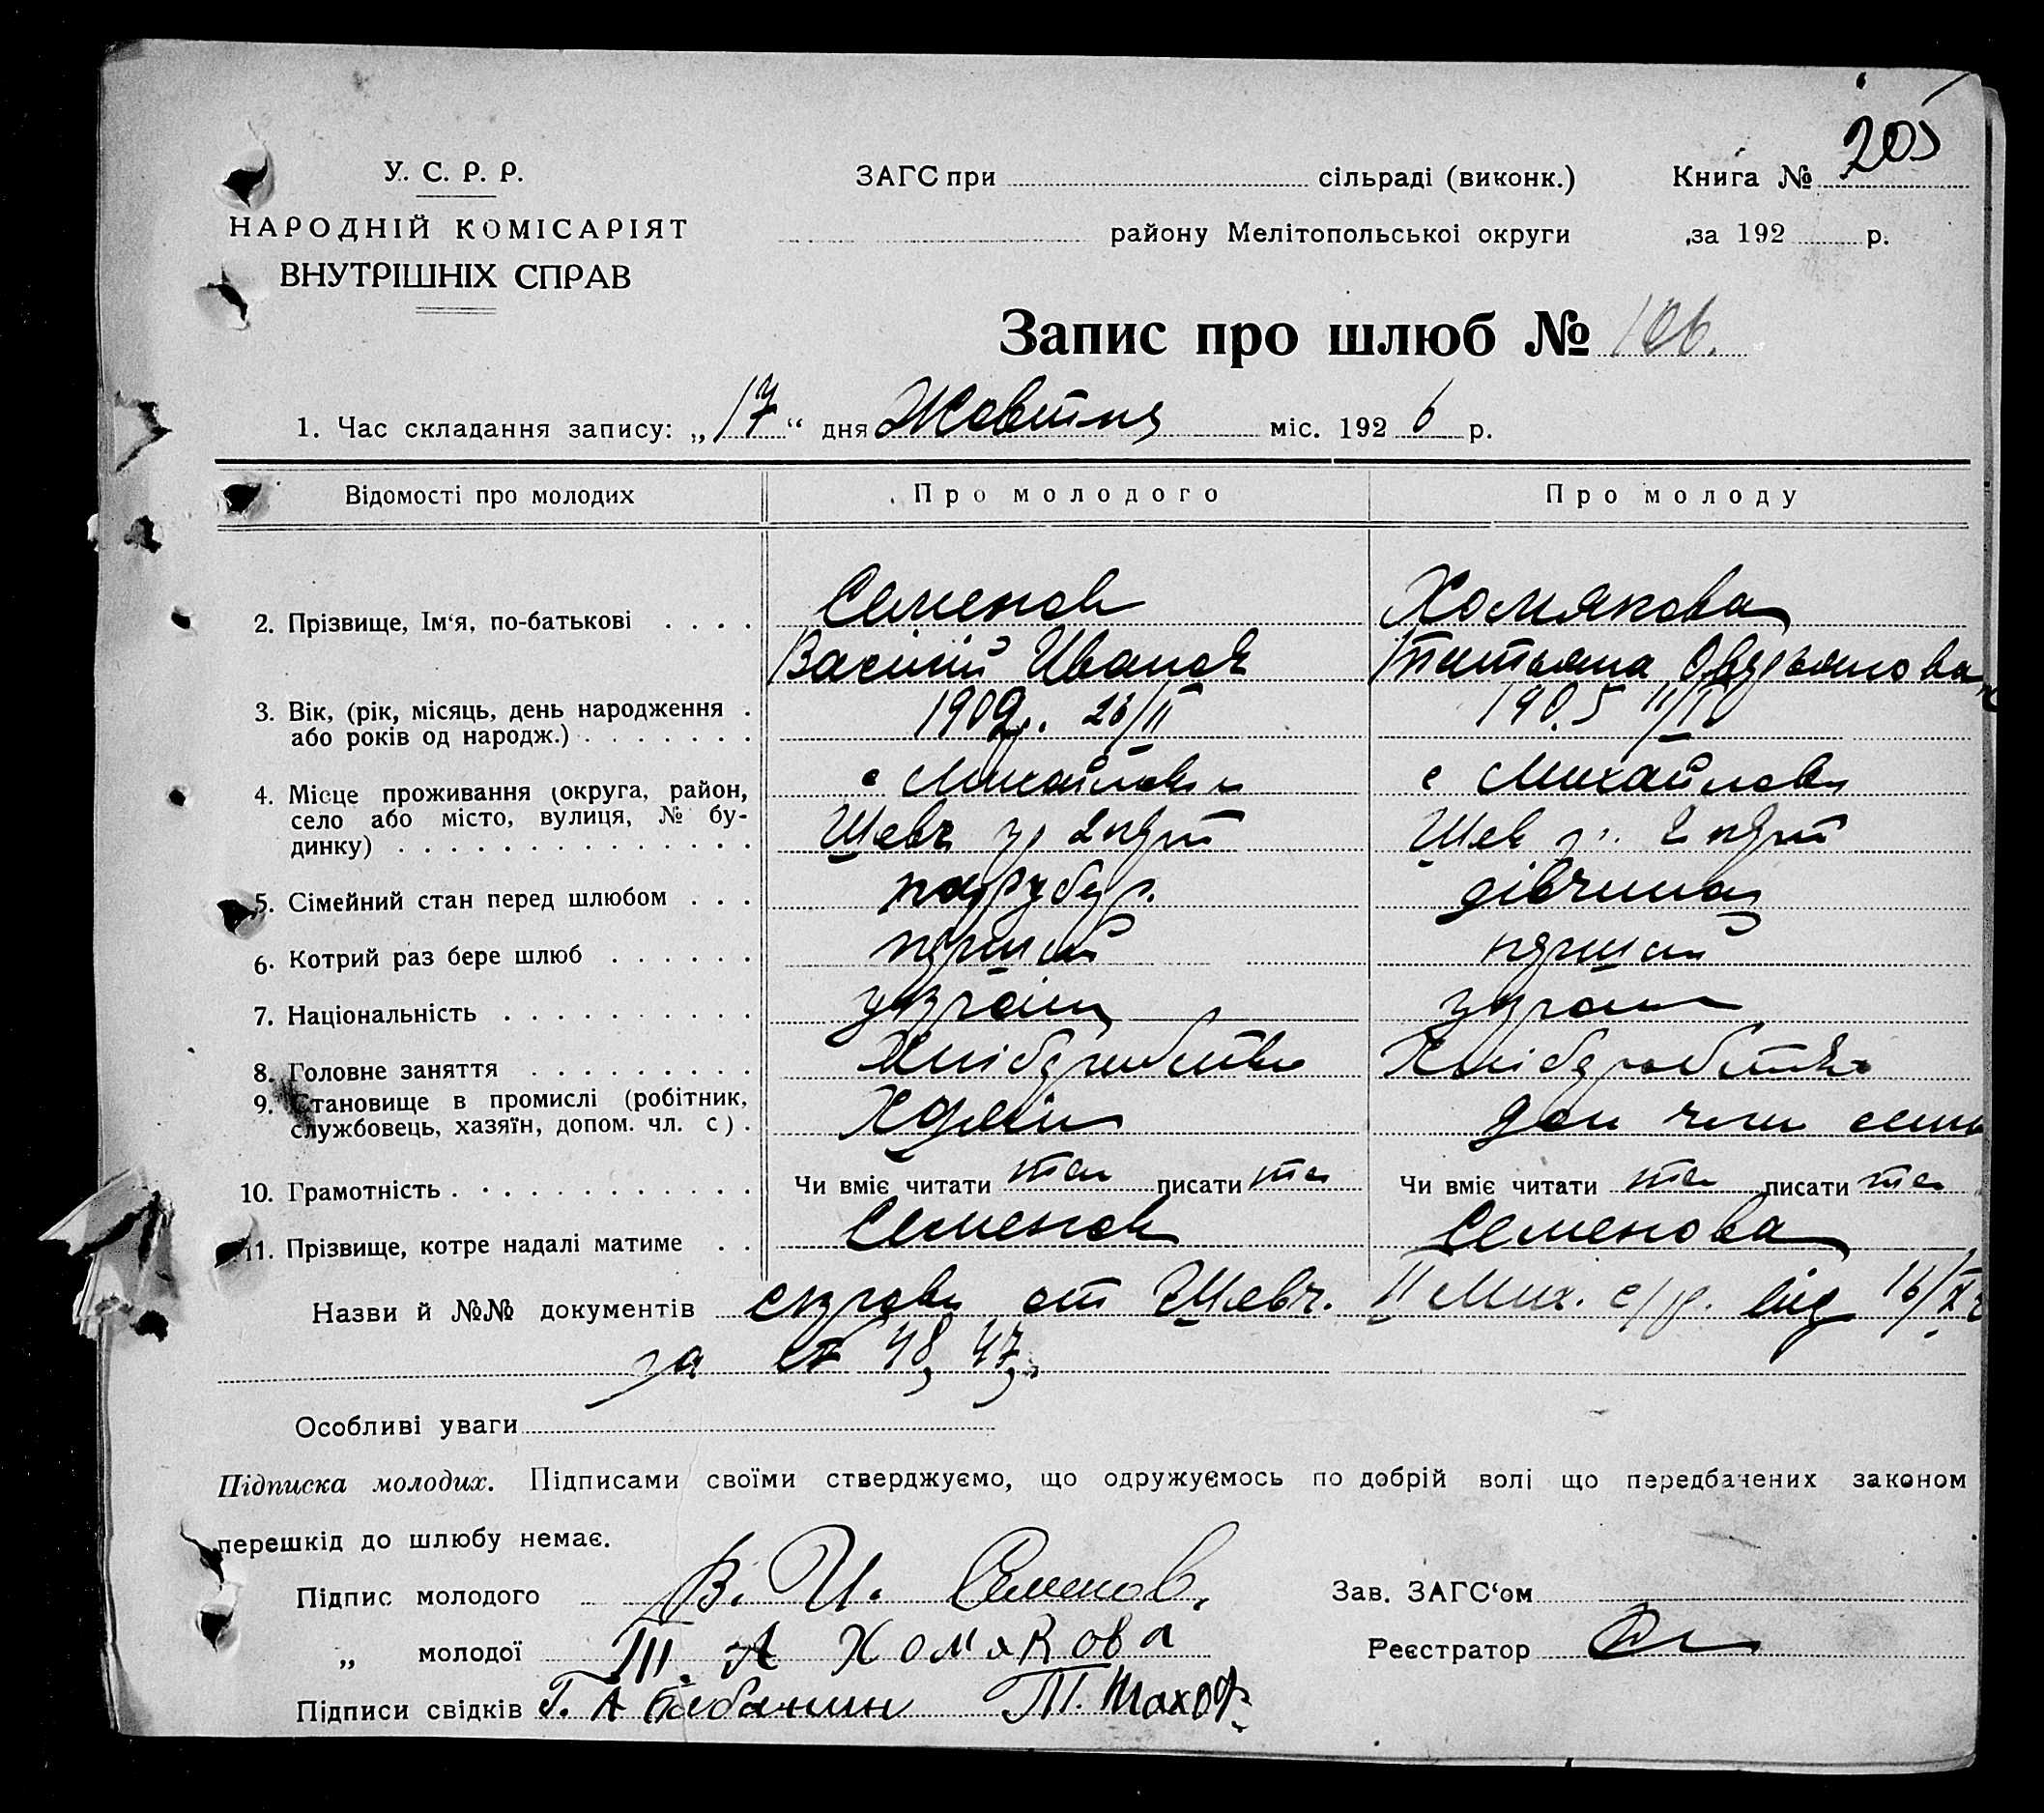 205
У. С. Р. Р.
НАРОДНІЙ КОМІСАРІЯТ
ВНУТРІШНІХ СПРАВ
ЗАГС при сільраді (виконк.)
району Мелітопольськоі округи
Книга №
за 192 р.
Запис про шлюб № 106.
1. Час складання запису: „17“ дня Жовтня міс. 1926 р.
Відомості про молодих Про молодого Про молоду
2. Прізвище, Ім‘я, по-батькові Семенов Хомякова
Василий Иванов Татьяна
3. Вік, (рік, місяць, день народження
або років од народж.) 190 /II 1905 11/IV
4. Місце проживання (округа, район,
село або місто, вулиця, № бу-
динку)
с Михайловка с Михайловка
Шевч Шев
5. Сімейний стан перед шлюбом парубок дівчина
6. Котрий раз бере шлюб перший перший
7. Національність україн україн
8. Головне заняття Хліборобство Хліборобство
9. Становище в промислі (робітник,
службовець, хазяїн, допом. чл. с) . доп член
10. Грамотність Чи вміє читати так писати так Чи вміє читати так писати так
11. Прізвище, котре надалі матиме Семенов Семенова
Назви й №№ документів справки от Шевч. II Мих. с/р. від 16/X
за № 48, 47.
Особливі уваги
Підписка молодих. Підписами своїми стверджуємо, що одружуємось по добрій волі що передбачених законом
перешкід до шлюбу немає.
Підпис молодого В. И. Семенов. Зав. ЗАГС‘ом
„ молодої Т. А Хомякова Реєстратор
Підписи свідків Г. А Бабанин Т.